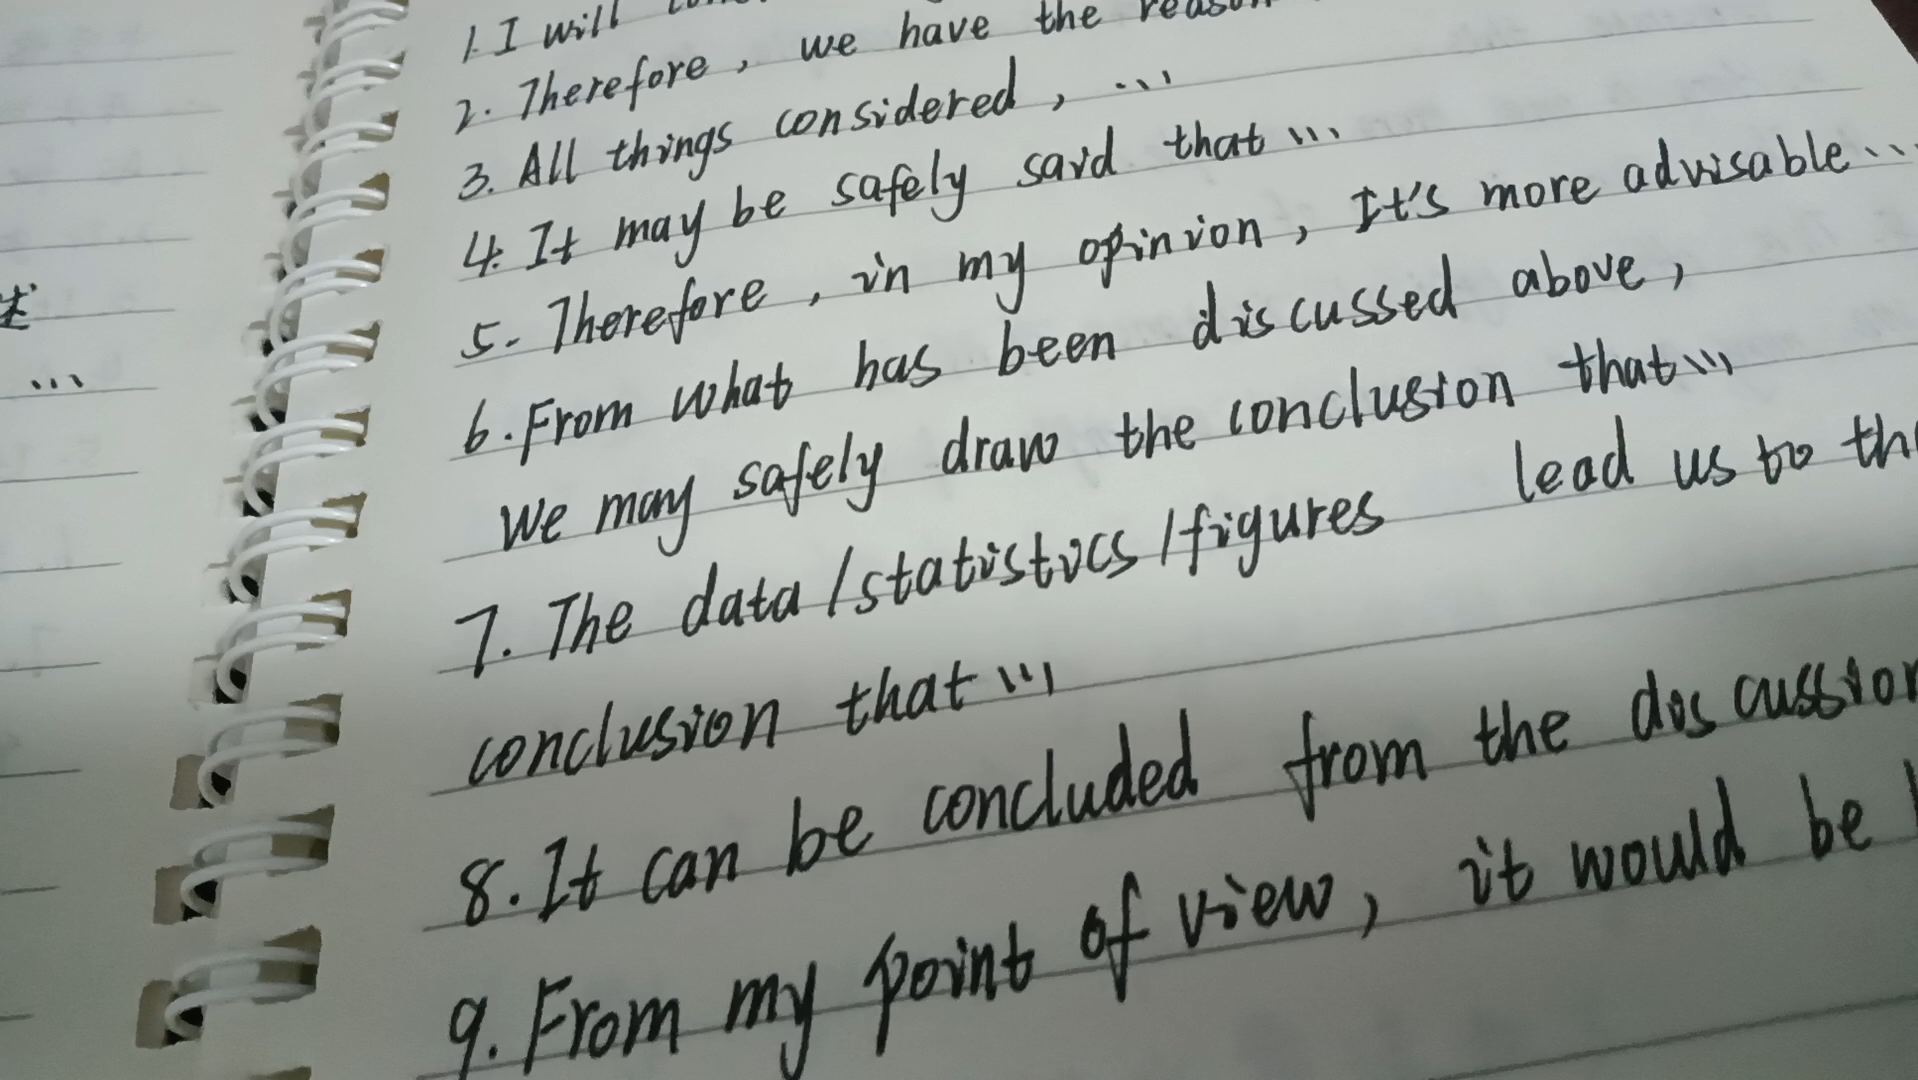 述
...
1. I will
2. Therefore, we have the reason
3. All things considered, ...
4. It may be safely said that...
5. Therefore, in my opinion, It's more advisable...
6. From what has been discussed above,
We may safely draw the conclusion that...
7. The data/statistics/figures lead us to
conclusion that...
8. It can be concluded from the discussion
9. From my point of view, it would be